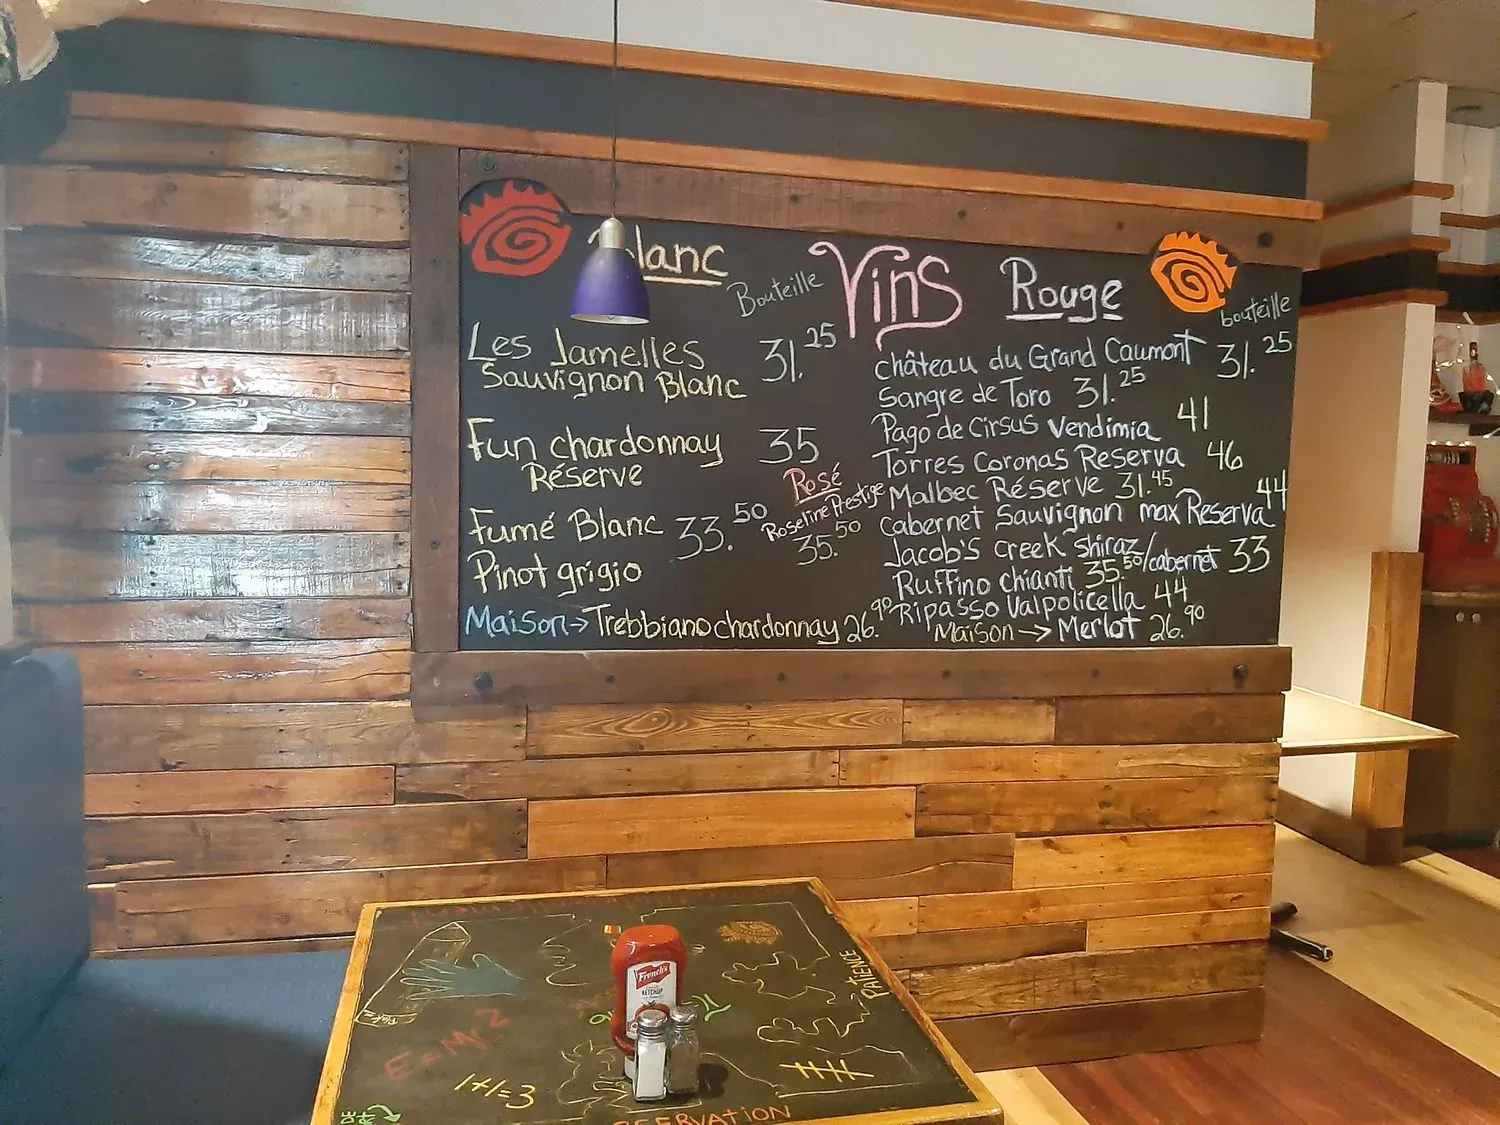 Blanc
Bouteille
Les Jamelles 31.25
Sauvignon Blanc
Fun chardonnay 35
Réserve
Fumé Blanc 33.50
Pinot grigio
Maison → Trebbiano chardonnay 26.90
Vins
Rosé
Roseline Prestige
35.50
Rouge
bouteille
château du Grand Caumont 31.25
Sangre de Toro 31.25
Pago de Cirsus Vendimia 41
Torres Coronas Reserva 46
Malbec Réserve 31.45
Cabernet Sauvignon max Reserva 44
Jacob's creek shiraz/cabernet 33
Ruffino chianti 35.50
Ripasso Valpolicella 44
Maison → Merlot 26.90
French's
KETCHUP
PATIENCE
E=MC2
1+1=3